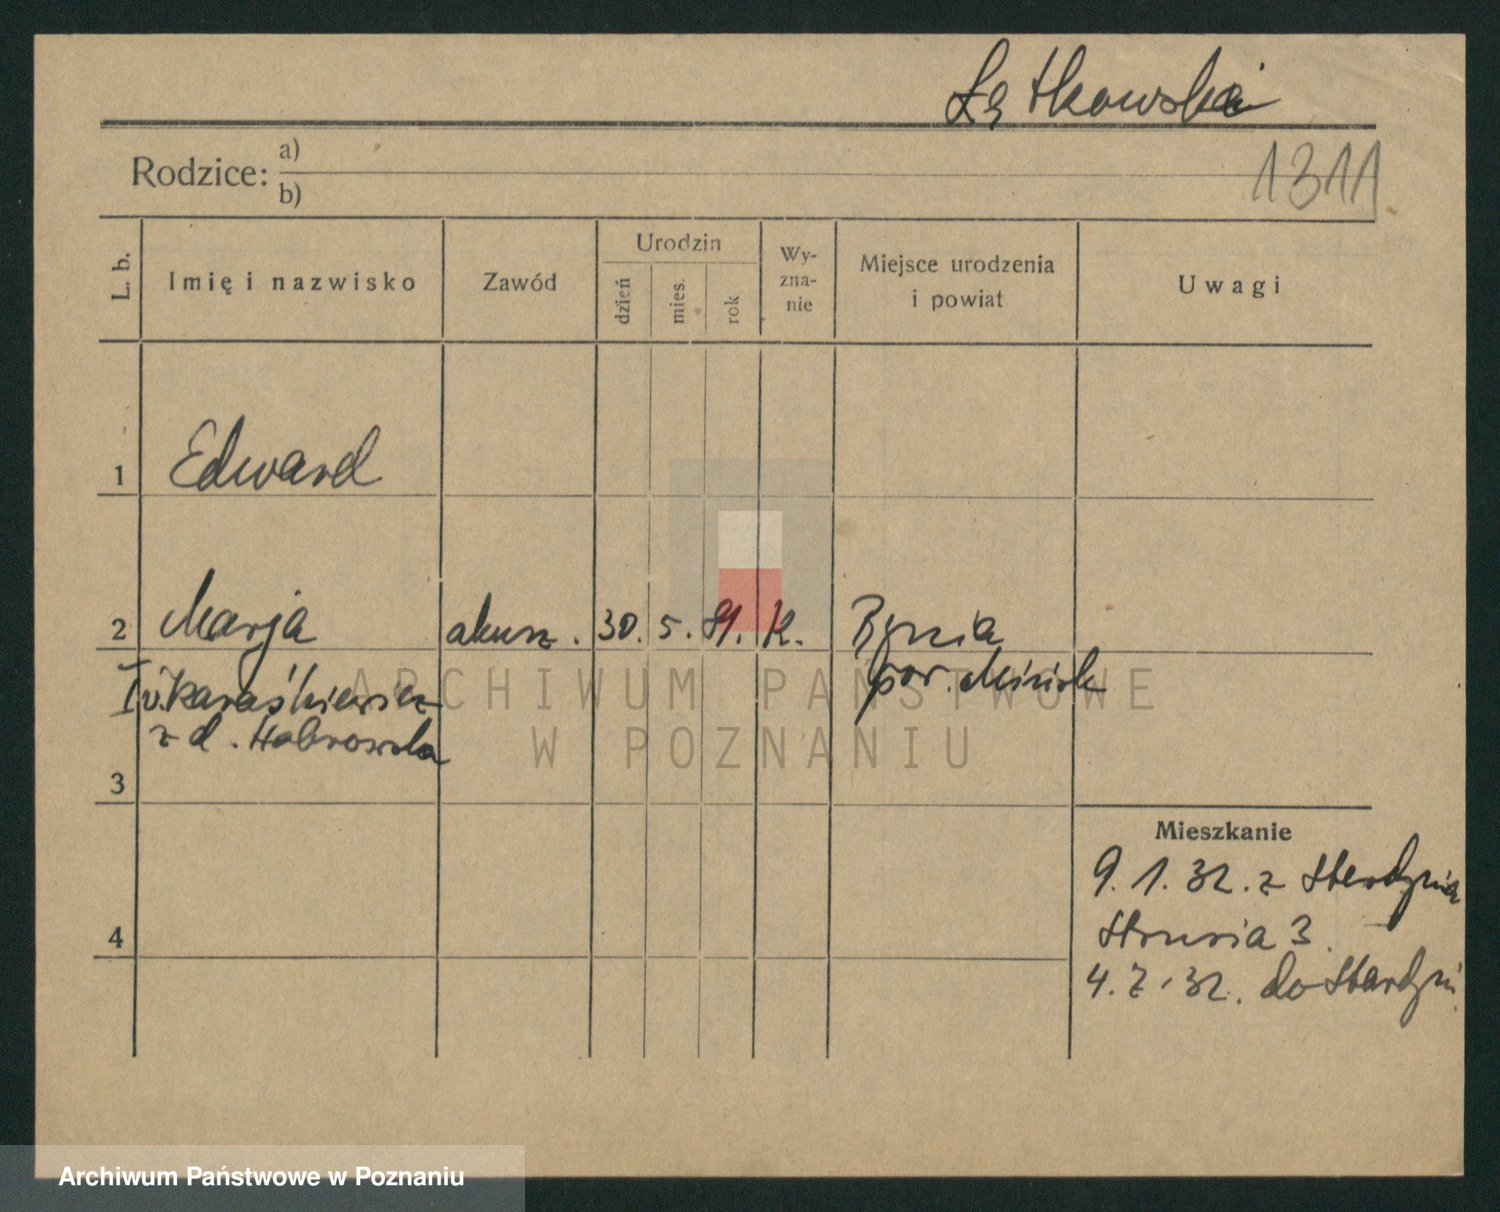 Lątkowski
Rodzice: a)
b)
1311
L. b.
Imię i nazwisko
Zawód
Urodzin
dzień
mies.
rok
Wy-
zna-
nie
Miejsce urodzenia
i powiat
Uwagi
1 Edward
2 Marja akusz. 30. 5. 81. K.
pow.
z d.
3
ARCHIWUM PAŃSTWOWE
W POZNANIU
Mieszkanie
9. 1. 32. z
Strusia 3.
4
4. 2. 32. do
Archiwum Państwowe w Poznaniu